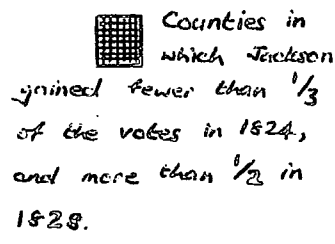 Counties in
which Jackson
gained fewer than 1/3
of the votes in 1824,
and more than 1/2 in
1828.